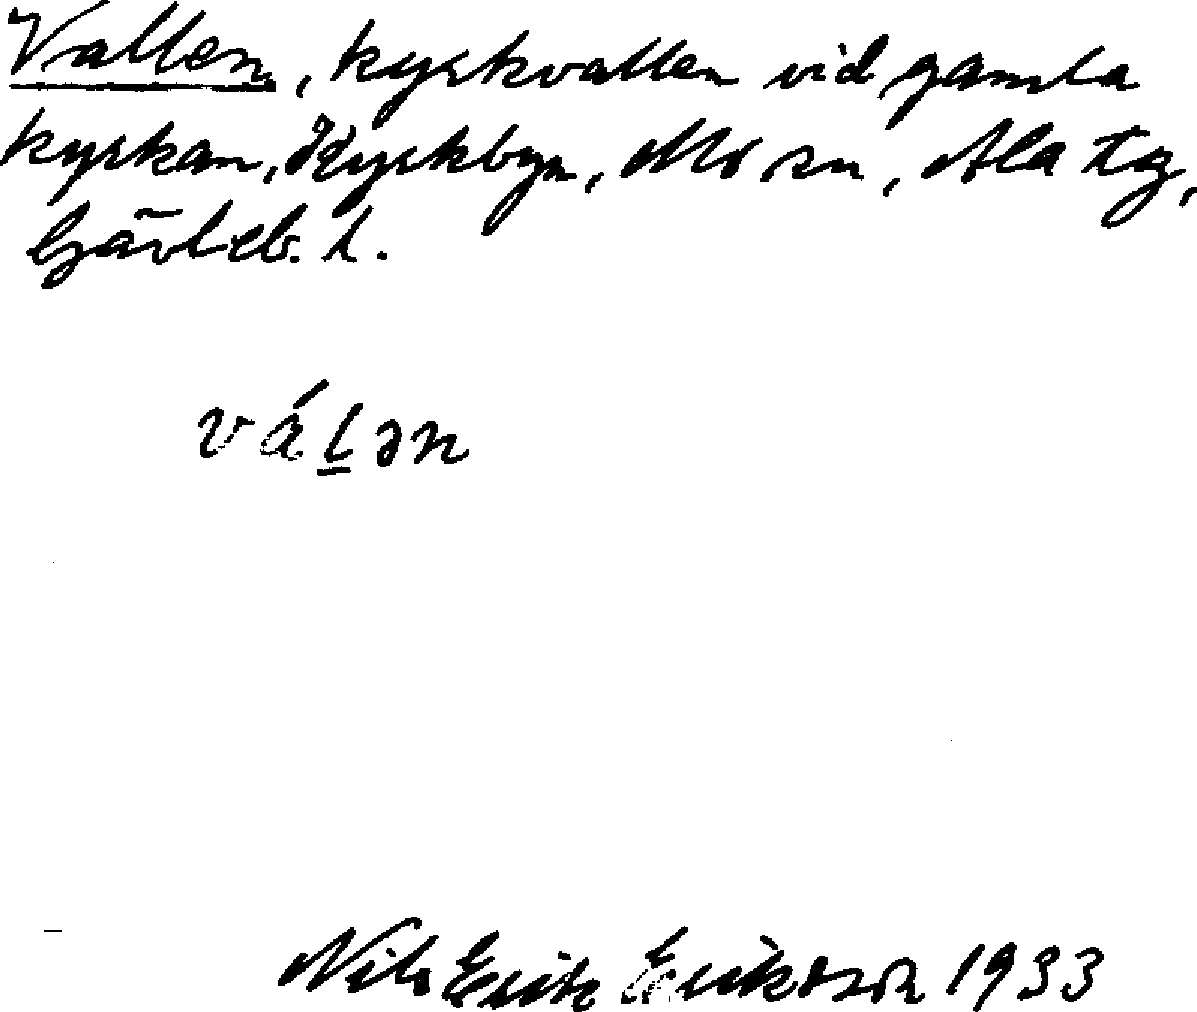 Vallen, kyrkvallen vid gamla
kyrkan, Kyrkbyn, Mo sn, Ala tg,
Gävleb. l.
válən
Nils Erik Erikson 1933